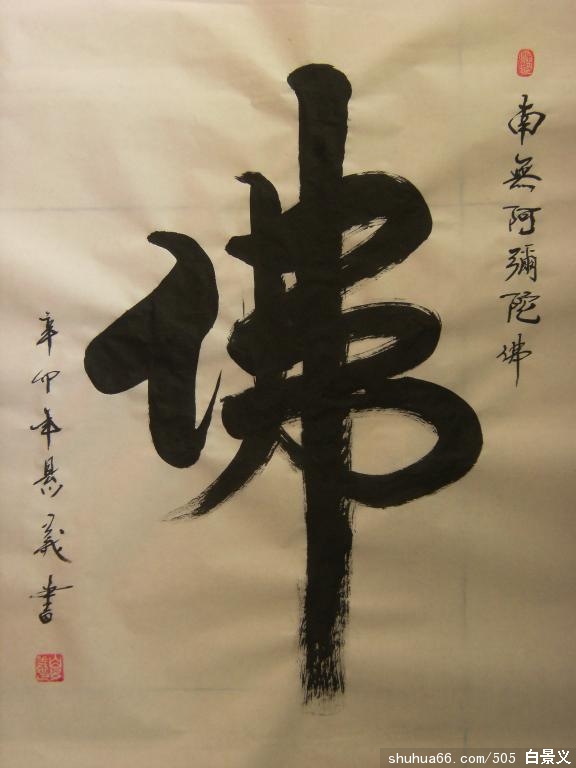 南無阿彌陀佛
佛
辛卯年景義書
shuhua66.com/505 白景义